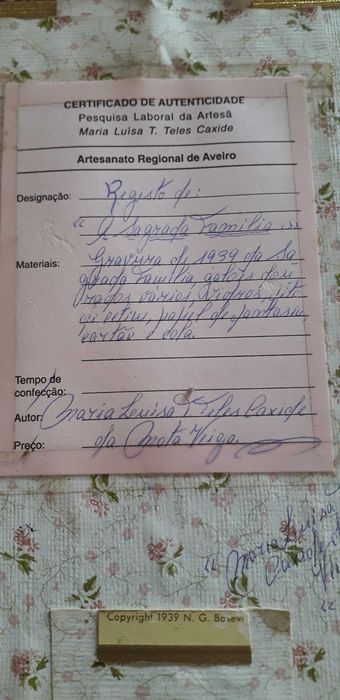 CERTIFICADO DE AUTENTICIDADE
Pesquisa Laboral da Artesã
Maria Luisa T. Teles Caxide
Artesanato Regional de Aveiro
Designação: Registo de:
"A Sagrada Família"
Materiais: Gravura de 1939 da Sa
grada Família, galões dou
rados vários, vidros, fita
de cetim, papel de fantasia
cartão e cola.
Tempo de
confecção:
Autor: Maria Louisa T. Teles Caxide
Preço: da Mota Veiga
"Maria Luisa
Caxide
Copyright 1939 N. G. Basevi